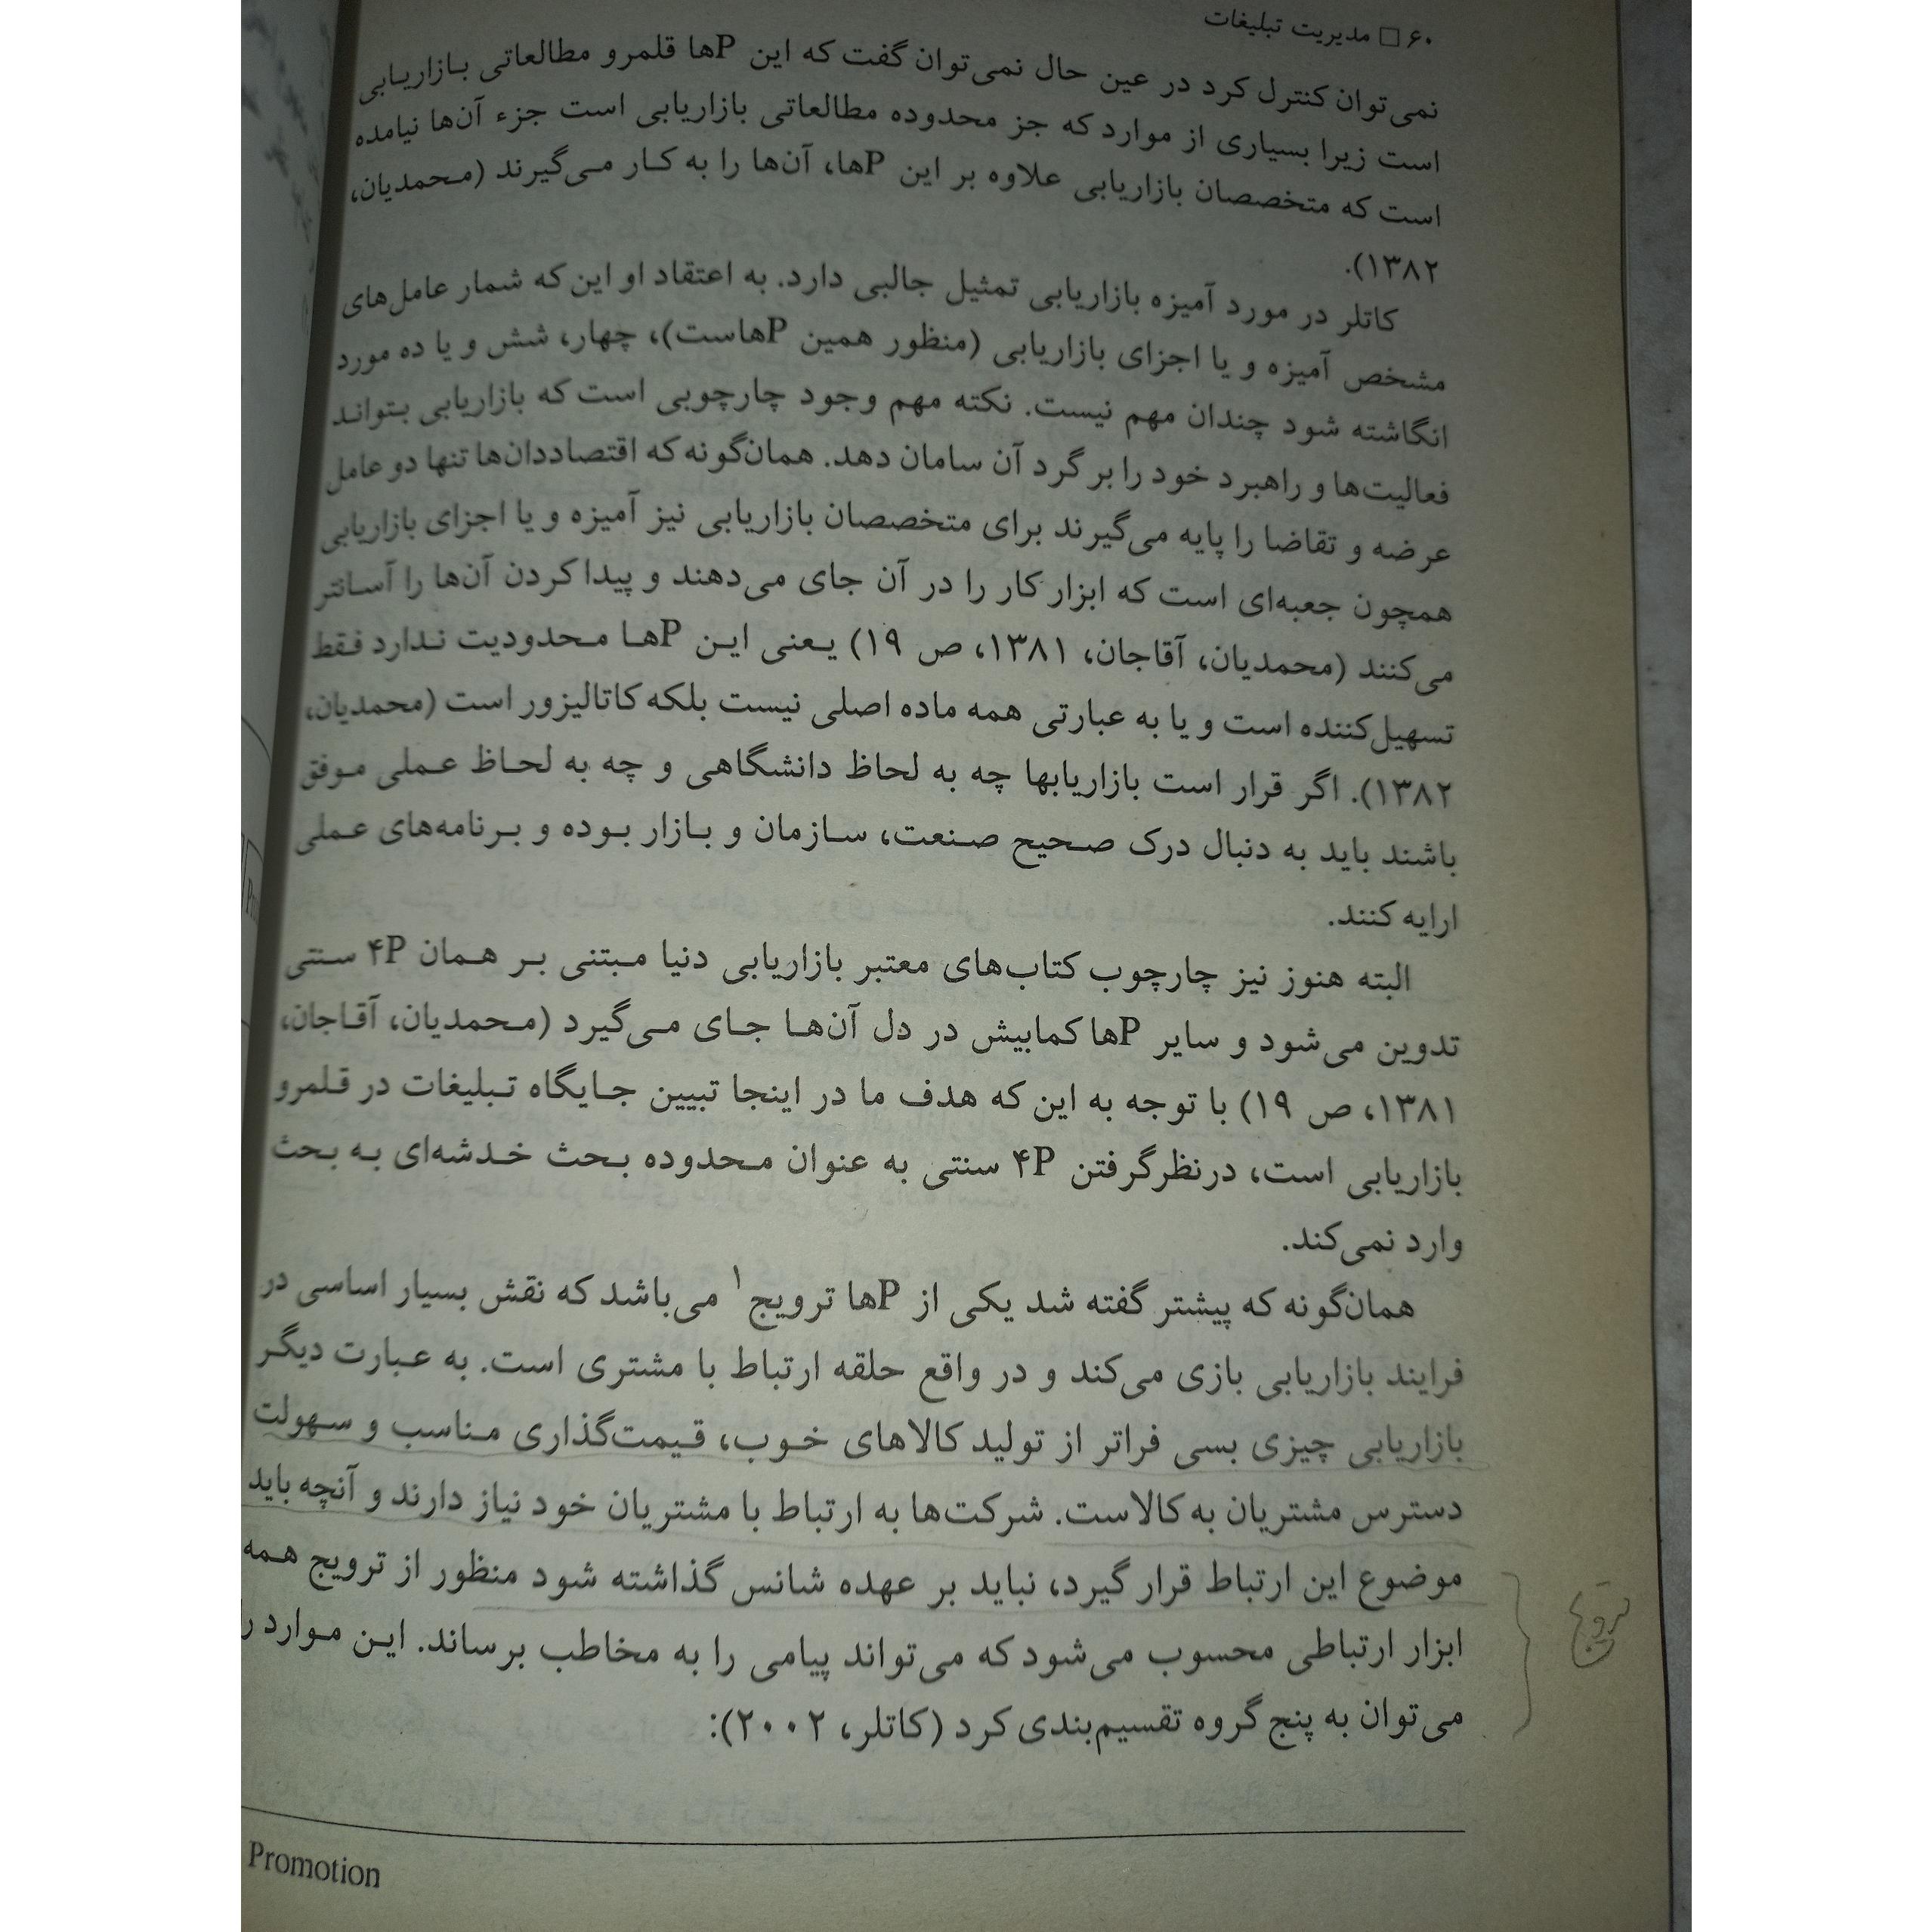 ۶۰ □ مدیریت تبلیغات
نمی‌توان کنترل کرد در عین حال نمی‌توان گفت که این Pها قلمرو مطالعاتی بازاریابی
است زیرا بسیاری از موارد که جز محدوده مطالعاتی بازاریابی است جزء آن‌ها نیامده
است که متخصصان بازاریابی علاوه بر این Pها، آن‌ها را به کار می‌گیرند (محمدیان،
۱۳۸۲).
کاتلر در مورد آمیزه بازاریابی تمثیل جالبی دارد. به اعتقاد او این که شمار عامل‌های
مشخص آمیزه و یا اجزای بازاریابی (منظور همین Pهاست)، چهار، شش و یا ده مورد
انگاشته شود چندان مهم نیست. نکته مهم وجود چارچوبی است که بازاریابی بتواند
فعالیت‌ها و راهبرد خود را بر گرد آن سامان دهد. همان‌گونه که اقتصاددان‌ها تنها دو عامل
عرضه و تقاضا را پایه می‌گیرند برای متخصصان بازاریابی نیز آمیزه و یا اجزای بازاریابی
همچون جعبه‌ای است که ابزار کار را در آن جای می‌دهند و پیدا کردن آن‌ها را آسانتر
می‌کنند (محمدیان، آقاجان، ۱۳۸۱، ص ۱۹) یعنی این Pها محدودیت ندارد فقط
تسهیل‌کننده است و یا به عبارتی همه ماده اصلی نیست بلکه کاتالیزور است (محمدیان،
۱۳۸۲). اگر قرار است بازاریابها چه به لحاظ دانشگاهی و چه به لحاظ عملی موفق
باشند باید به دنبال درک صحیح صنعت، سازمان و بازار بوده و برنامه‌های عملی
ارایه کنند.
البته هنوز نیز چارچوب کتاب‌های معتبر بازاریابی دنیا مبتنی بر همان ۴P سنتی
تدوین می‌شود و سایر Pها کمابیش در دل آن‌ها جای می‌گیرد (محمدیان، آقاجان،
۱۳۸۱، ص ۱۹) با توجه به این که هدف ما در اینجا تبیین جایگاه تبلیغات در قلمرو
بازاریابی است، درنظرگرفتن ۴P سنتی به عنوان محدوده بحث خدشه‌ای به بحث
وارد نمی‌کند.
همان‌گونه که پیشتر گفته شد یکی از Pها ترویج۱ می‌باشد که نقش بسیار اساسی در
فرایند بازاریابی بازی می‌کند و در واقع حلقه ارتباط با مشتری است. به عبارت دیگر
بازاریابی چیزی بسی فراتر از تولید کالاهای خوب، قیمت‌گذاری مناسب و سهولت
دسترس مشتریان به کالاست. شرکت‌ها به ارتباط با مشتریان خود نیاز دارند و آنچه باید
موضوع این ارتباط قرار گیرد، نباید بر عهده شانس گذاشته شود منظور از ترویج همه
ابزار ارتباطی محسوب می‌شود که می‌تواند پیامی را به مخاطب برساند. این موارد را
می‌توان به پنج گروه تقسیم‌بندی کرد (کاتلر، ۲۰۰۲):
ترویج
Promotion